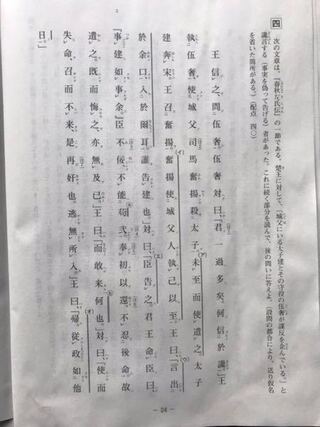 四
次の文章は、『春秋左氏伝』の一節である。楚王に対して、「城父にいる太子建とその守役の伍奢が謀反を企んでいる。」と
讒言する(事実を偽って告げる)者があった。これに続く部分を読んで、後の問いに答えよ。(設問の都合により、送り仮名
を省いた箇所がある。)(配点 四〇)
王信之、問伍奢。伍奢対曰、「君一過多矣。何信於讒。」王
執伍奢、使城父司馬奮揚殺太子。未至而使遣之。太子
建奔宋。王召奮揚。奮揚使城父人執己以至。王曰、「言出
於余口、入於爾耳。誰告建也。」対曰、「臣告之。君王命臣曰、
『事建如事余。』臣不佞、不能苟弐。奉初以還、不忍後命。故
遣之。既而悔之、亦無及已。」王曰、「而敢来何也。」対曰、「使而
失命、召而不来、是再奸也。逃無所入。」王曰、「帰。従政如他
日。」
— 24 —